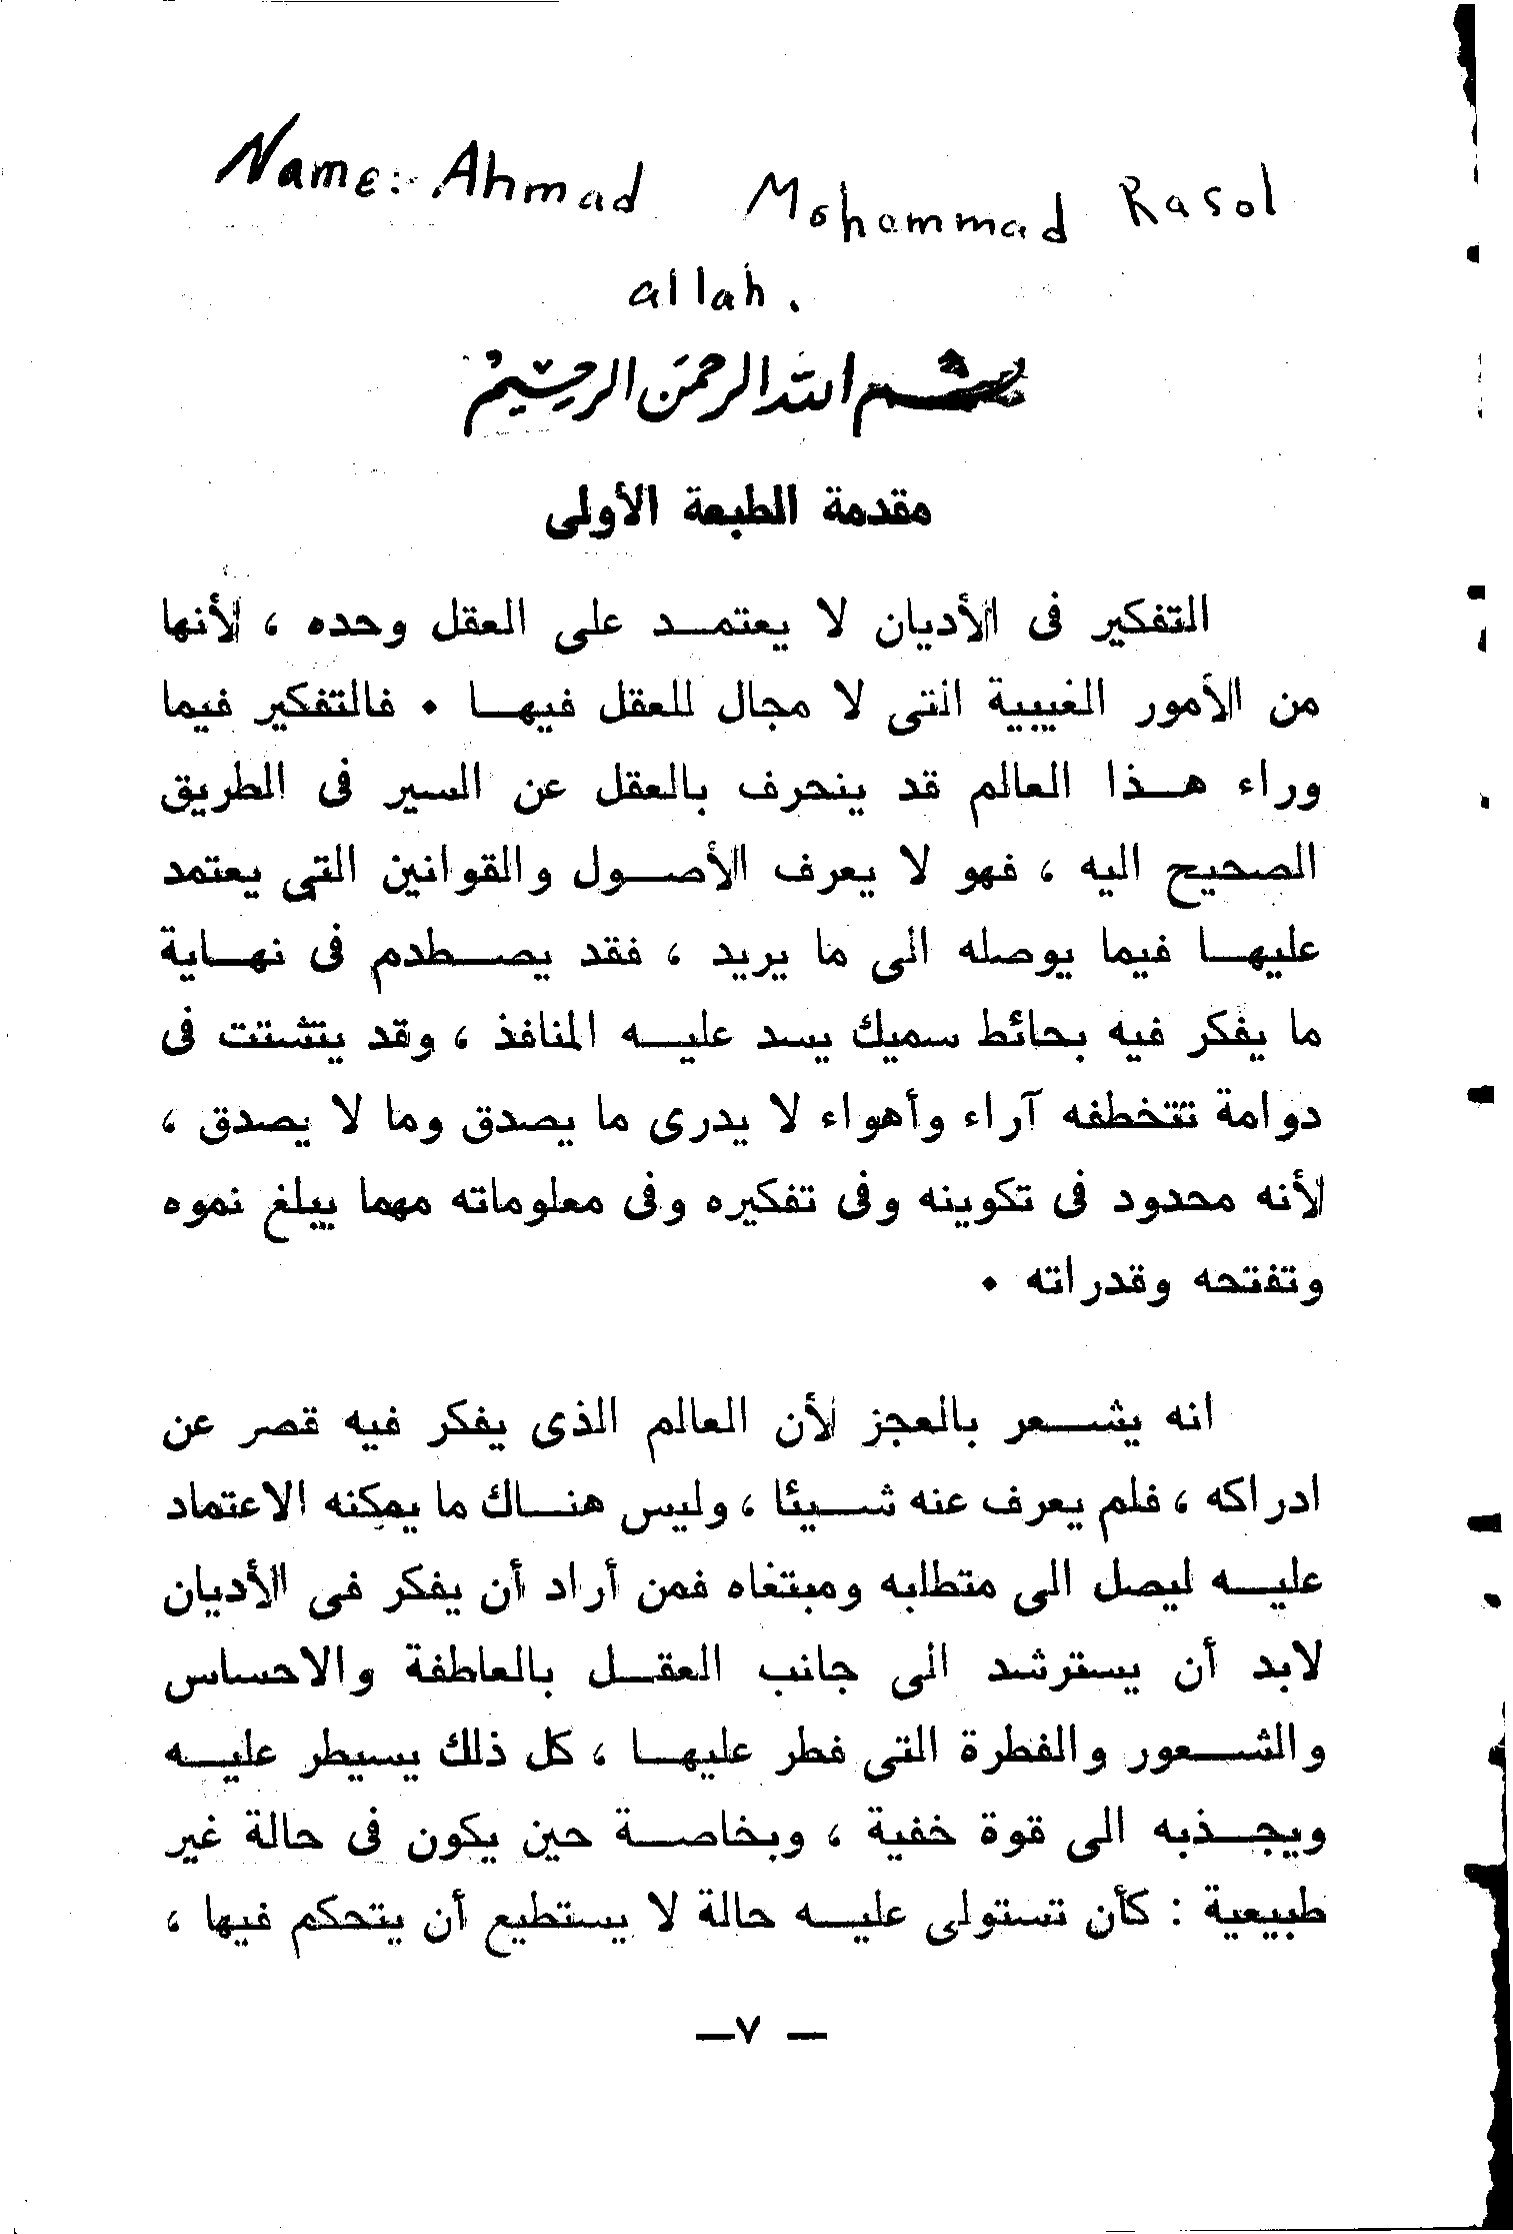 Name:- Ahmad Mohammad Rasol
allah.
بسم الله الرحمن الرحيم
مقدمة الطبعة الأولى
التفكير فى الأديان لا يعتمــد على العقل وحده ، لأنها
من الأمور الغيبية التى لا مجال للعقل فيهــا • فالتفكير فيما
وراء هــذا العالم قد ينحرف بالعقل عن السير فى الطريق
الصحيح اليه ، فهو لا يعرف الأصــول والقوانين التى يعتمد
عليهــا فيما يوصله الى ما يريد ، فقد يصــطدم فى نهــاية
ما يفكر فيه بحائط سميك يسد عليــه المنافذ ، وقد يتشتت فى
دوامة تتخطفه آراء وأهواء لا يدرى ما يصدق وما لا يصدق ،
لأنه محدود فى تكوينه وفى تفكيره وفى معلوماته مهما يبلغ نموه
وتفتحه وقدراته •
انه يشــعر بالعجز لأن العالم الذى يفكر فيه قصر عن
ادراكه ، فلم يعرف عنه شــيئا ، وليس هنــاك ما يمكنه الاعتماد
عليــه ليصل الى متطلبه ومبتغاه فمن أراد أن يفكر فى الأديان
لابد أن يسترشد الى جانب العقــل بالعاطفة والاحساس
والشــعور والفطرة التى فطر عليهــا ، كل ذلك يسيطر عليــه
ويجــذبه الى قوة خفية ، وبخاصــة حين يكون فى حالة غير
طبيعية : كأن تستولى عليــه حالة لا يستطيع أن يتحكم فيها ،
— ٧ —